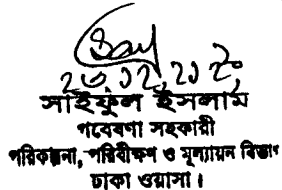 ২৩.১২.২০২০
সাইফুল ইসলাম
গবেষণা সহকারী
পরিকল্পনা, পরিবীক্ষণ ও মূল্যায়ন বিভাগ
ঢাকা ওয়াসা।